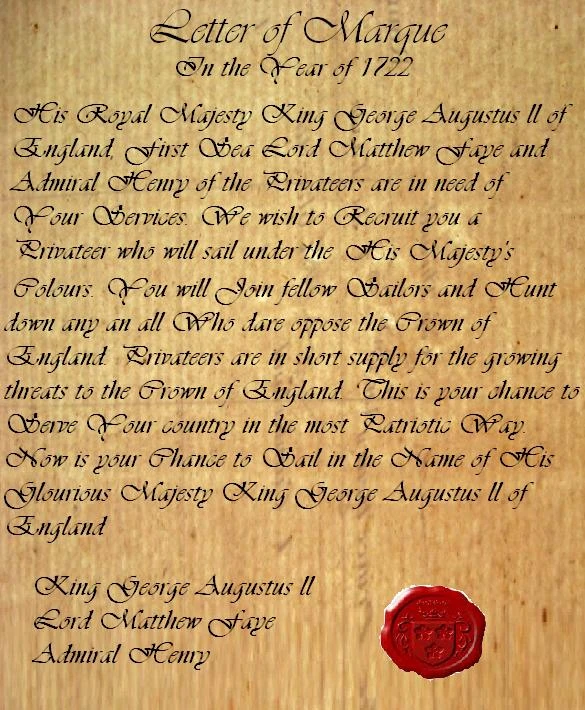 Letter of Marque
In the Year of 1722
His Royal Majesty King George Augustus ll of
England, First Sea Lord Matthew Faye and
Admiral Henry of the Privateers are in need of
Your Services. We wish to Recruit you a
Privateer who will sail under the His Majesty's
Colours. You will Join fellow Sailors and Hunt
down any an all Who dare oppose the Crown of
England. Privateers are in short supply for the growing
threats to the Crown of England. This is your chance to
Serve Your country in the most Patriotic Way.
Now is your Chance to Sail in the Name of His
Glourious Majesty King George Augustus ll of
England
King George Augustus ll
Lord Matthew Faye
Admiral Henry